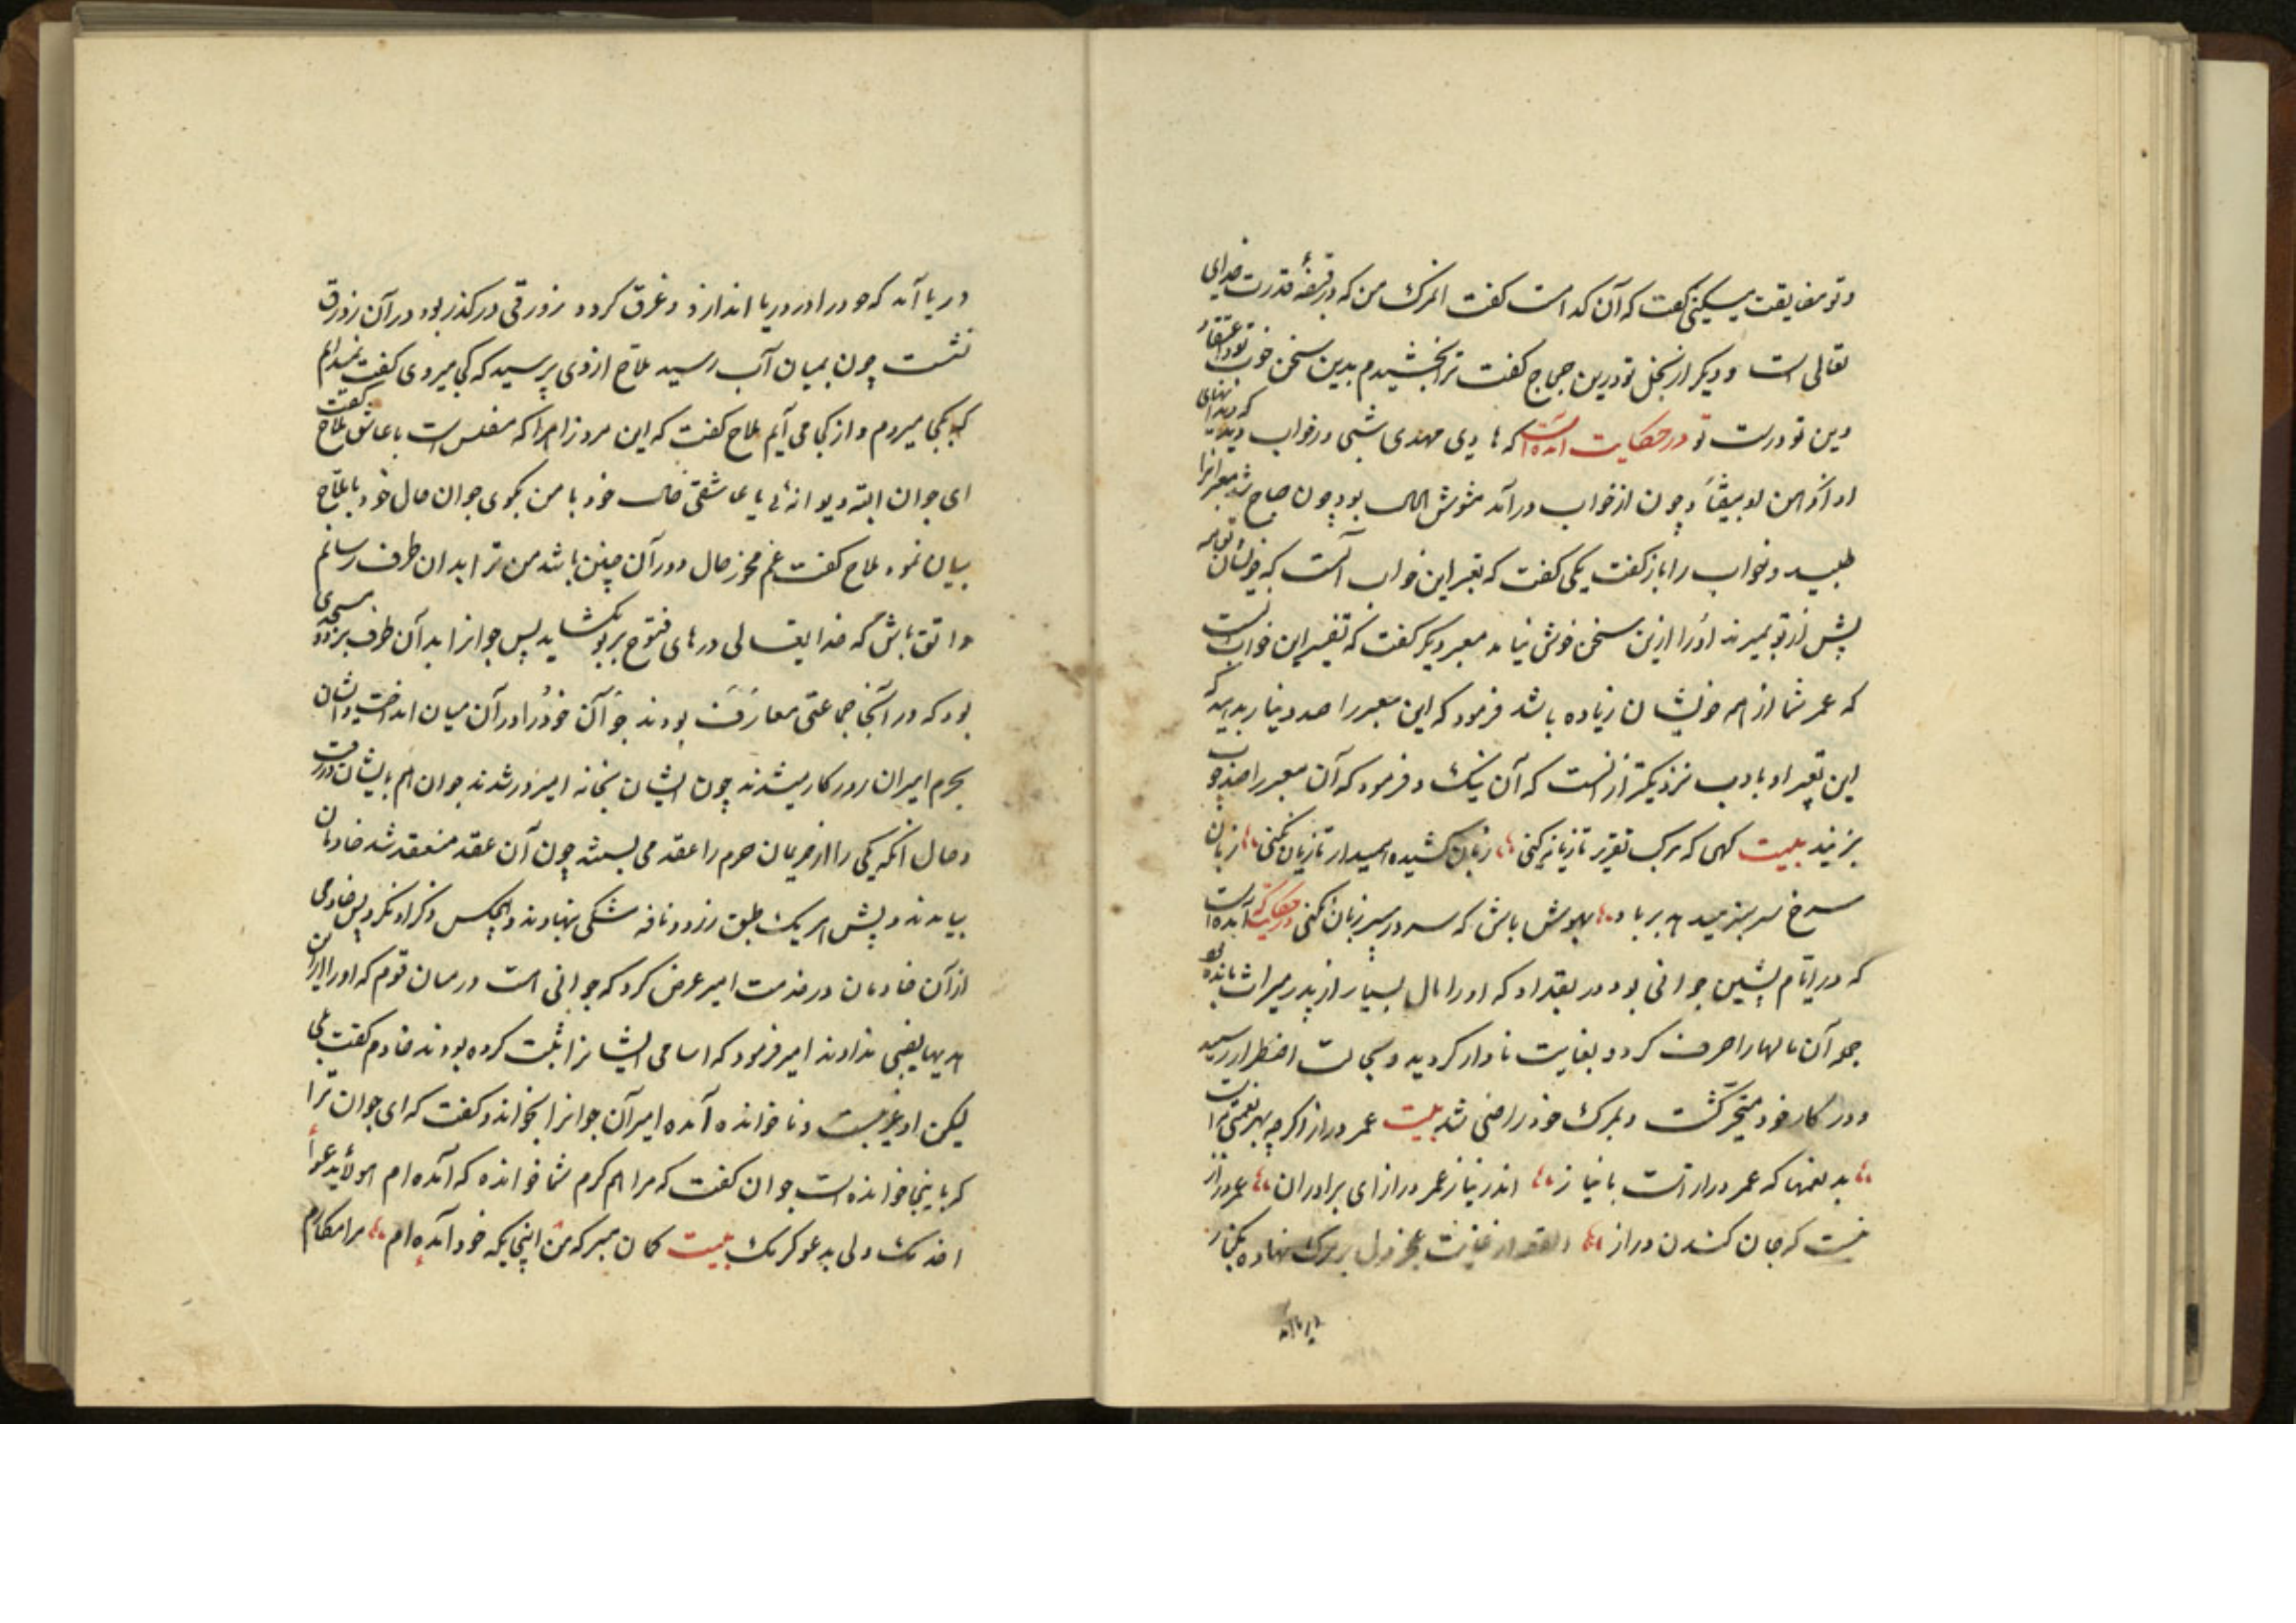 و تو مضایقت میکنی گفت که آن کدامست گفت اگر مرگ من که در قبضهٔ قدرت خدای
تعالی است و دیگر از بخل تو درین حجاج گفت ترا بخشیدم بدین سخن خوب تو و اعتقاد
دین تو درست در حکایت آمده است که هادی مهدی شبی در خواب دید که دندانهای
او چون از خواب درآمد مشوش الحال بود چون صباح شد معبرانرا
طلبید و خواب را باز گفت یکی گفت که تعبیر این خواب آنست که خویشان تو همه
پیش از تو بمیرند او را ازین سخن خوش نیامد معبر دیگر گفت که تفسیر این خواب آنست
که عمر شما از هم خویشان زیاده باشد فرمود که این معبر را صد دینار بدهید که
این تعبیر او بادب نزدیکتر از آنست که آن یک و فرمود که آن معبر را صد چوب
بزنید بیت کهی که برک تقریر تازیانه کنی زبان کشیده همیدار تا زیان نکنی زبان
سرخ سر سبز میدهد بر باد بهوش باش که سر در سر زبان نکنی در حکایت آمده است
که در ایام پیشین جوانی بود در بغداد که او را مال بسیار از پدر میراث مانده بود
جمو آن مالها را صرف کرد و بغایت نادار کردید و بحالت اضطرار رسید
و در کار خود متحیر گشت و بمرگ خود راضی شد بیت عمر دراز اگرچه بهر نعمتی سزاست
بد نعمتها که عمر درازست با نیاز اندر نیاز عمر دراز ای برادران عمر دراز
نیست که جان کندن دراز القصه از غایت عجز دل بر مرگ نهاده بکنار
دریا آمد
دریا آمد که خود را در دریا اندازد و غرق کردد زورقی در گذر بود در آن زورق
نشست چون بمیان آب رسید ملاح از وی پرسید که کجا میروی گفت نمیدانم
که بکجا میروم و از کجا می آیم ملاح گفت که این مرد زاهرا که مفلس است یا عاشق ملاح گفت
ای جوان البته دیوانهٔ یا عاشقی حال خود با من بگوی جوان حال خود با ملاح
بیان نمود ملاح گفت غم مخور حال دوران چنین باشد من ترا بدان طرف رسانم
واثق باش که خدایتعالی درهای فتوح بر تو بگشاید پس جوانرا بدآن طرف برد مسجدی
بود که در آنجا جماعتی معارف بودند جوان خود را در آن میان انداخت و ایشان
بحرم امیران روزگار میشدند چون ایشان بخانه امیر در شدند جوان هم با ایشان در رفت
و حال آنکه یکی را از حریمان حرم را عقد می بستند چون آن عقد منعقد شد خادمان
بیامدند و پیش هر یک طبق زر و نافه مشکی بنهادند و هیچکس ذکر او نکرد پس خادمی
از آن خادمان در خدمت امیر عرض کرد که جوانی است در میان قوم که او را از این
هدیها نصیبی ندادند امیر فرمود که اسامی ایشانرا ثبت کرده بودند خادم گفت بلی
لیکن او غریبست و ناخوانده آمده امیر آن جوانرا بخواند و گفت که ای جوان ترا
که باینجا خوانده است جوان گفت که مرا هم کرم شما خوانده که آمده ام
بیت گمان مبر که من اینجایگه خود آمده ام مرا مکارم